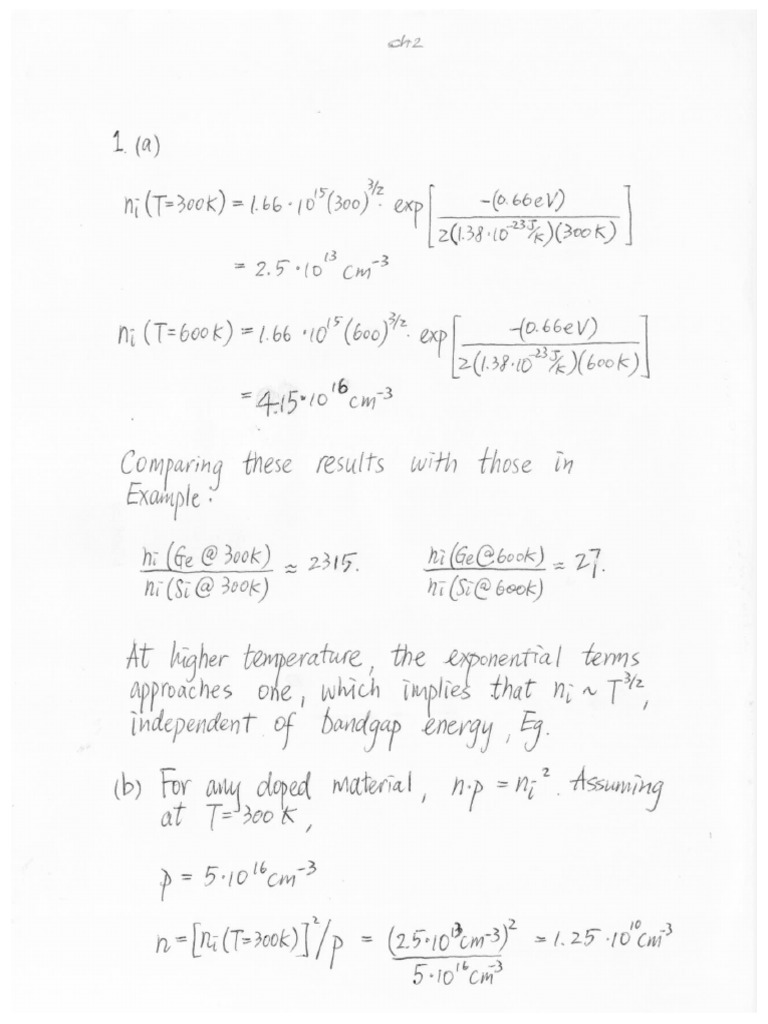 ch2
1. (a)
ni (T=300K) = 1.66 · 10^15 (300)^3/2 · exp[ -(0.66eV) / 2(1.38·10^-23 J/K)(300K) ]
= 2.5 · 10^13 cm^-3
ni (T=600K) = 1.66 · 10^15 (600)^3/2 · exp[ -(0.66eV) / 2(1.38·10^-23 J/K)(600K) ]
= 4.15 · 10^16 cm^-3
Comparing these results with those in
Example:
ni (Ge @ 300K) / ni (Si @ 300K) ≈ 2315. ni (Ge @ 600K) / ni (Si @ 600K) ≈ 27.
At higher temperature, the exponential terms
approaches one, which implies that ni ~ T^3/2,
independent of bandgap energy, Eg.
(b) For any doped material, n·p = ni^2. Assuming
at T = 300 K,
p = 5·10^16 cm^-3
n = [ni (T=300K)]^2 / p = (2.5·10^13 cm^-3)^2 / 5·10^16 cm^-3 = 1.25 · 10^10 cm^-3